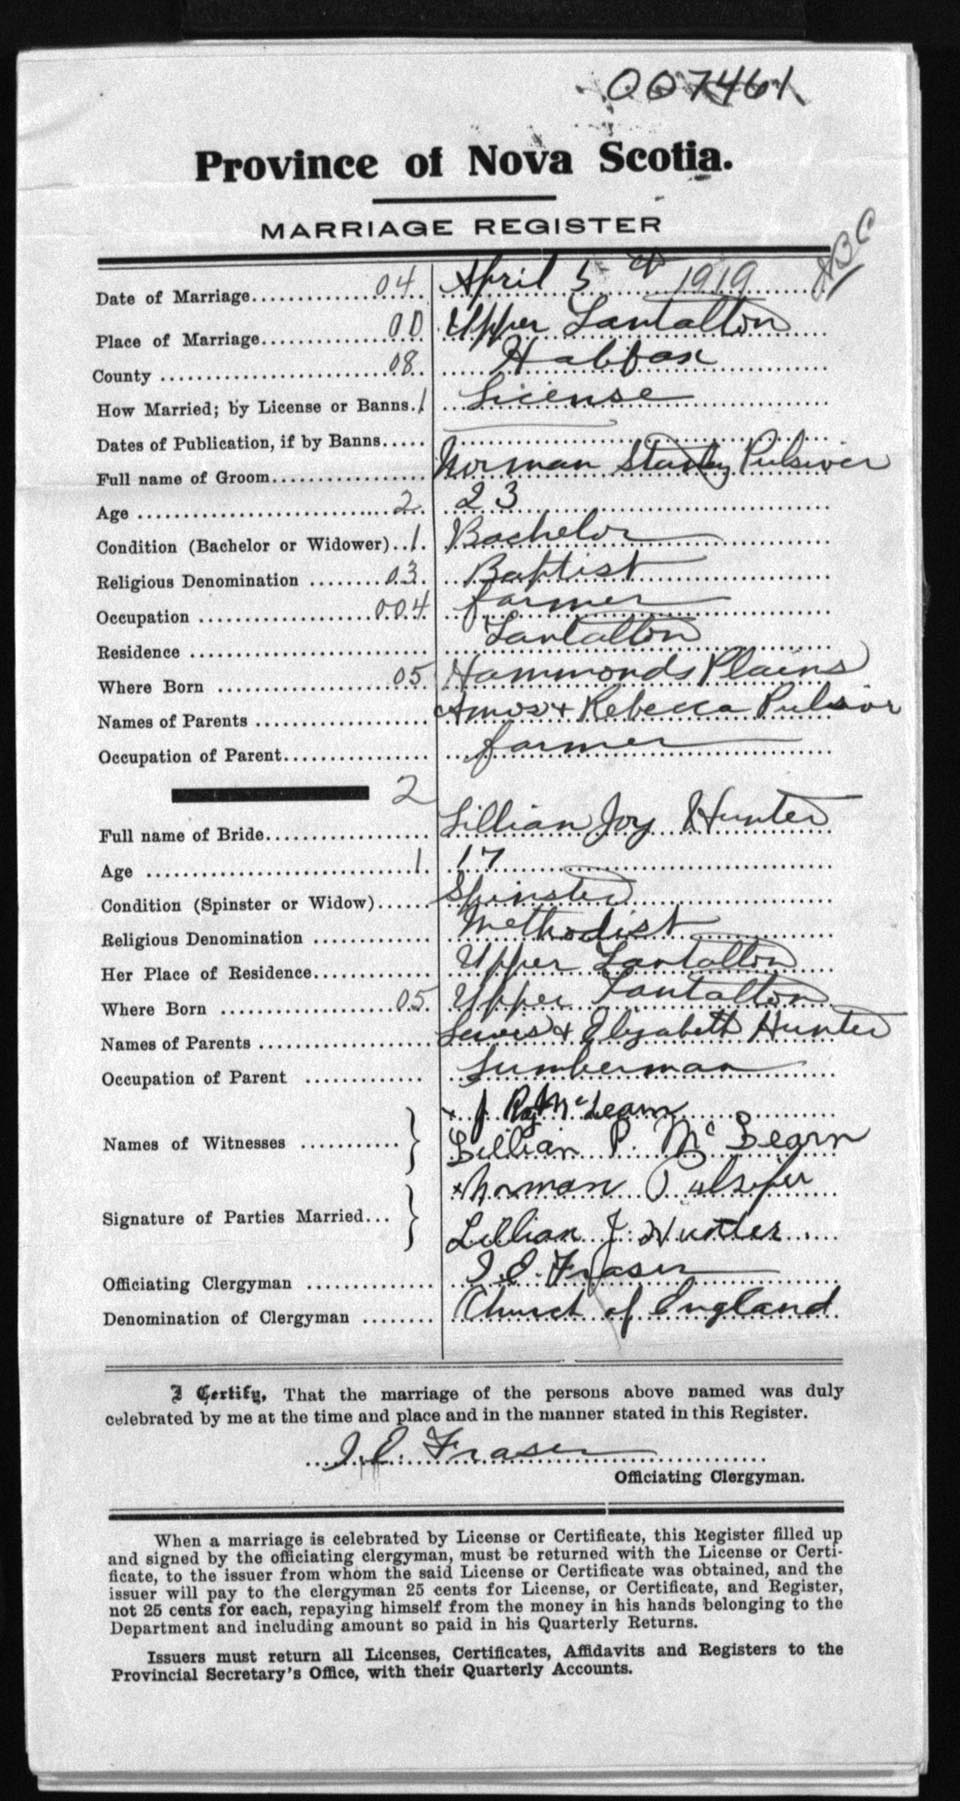 007461
Province of Nova Scotia.
MARRIAGE REGISTER
Date of Marriage 04 April 5 1919
Place of Marriage 00 Upper Tantallon
County 08 Halifax
How Married; by License or Banns. 1 License
Dates of Publication, if by Banns
Full name of Groom Norman Stanley Pulsiver
Age 2 23
Condition (Bachelor or Widower) 1 Bachelor
Religious Denomination 03 Baptist
Occupation 004 farmer
Residence Tantallon
Where Born 05 Hammonds Plains
Names of Parents Amos + Rebecca Pulsiver
Occupation of Parent farmer
2
Full name of Bride Lillian Joy Hunter
Age 1 17
Condition (Spinster or Widow) Spinster
Religious Denomination Methodist
Her Place of Residence Upper Tantallon
Where Born 05 Upper Tantallon
Names of Parents Lewis + Elizabeth Hunter
Occupation of Parent Lumberman
Names of Witnesses J Roy McLearn
Lillian P. McLearn
Signature of Parties Married Norman Pulsifer
Lillian J. Hunter
Officiating Clergyman I. E. Fraser
Denomination of Clergyman Church of England
I Certify, That the marriage of the persons above named was duly
celebrated by me at the time and place and in the manner stated in this Register.
I. E. Fraser
Officiating Clergyman.
When a marriage is celebrated by License or Certificate, this Register filled up
and signed by the officiating clergyman, must be returned with the License or Certi-
ficate, to the issuer from whom the said License or Certificate was obtained, and the
issuer will pay to the clergyman 25 cents for License, or Certificate, and Register,
not 25 cents for each, repaying himself from the money in his hands belonging to the
Department and including amount so paid in his Quarterly Returns.
Issuers must return all Licenses, Certificates, Affidavits and Registers to the
Provincial Secretary's Office, with their Quarterly Accounts.